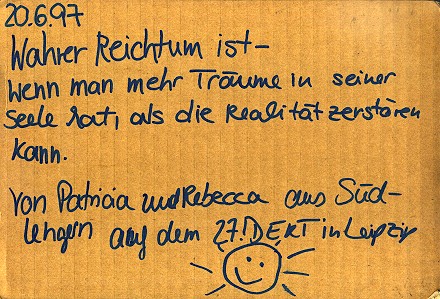 20.6.97
Wahrer Reichtum ist-
wenn man mehr Träume in seiner
Seele hat, als die Realität zerstören
kann.
Von Patricia und Rebecca aus Süd-
lengern auf dem 27. DEKT in Leipzig